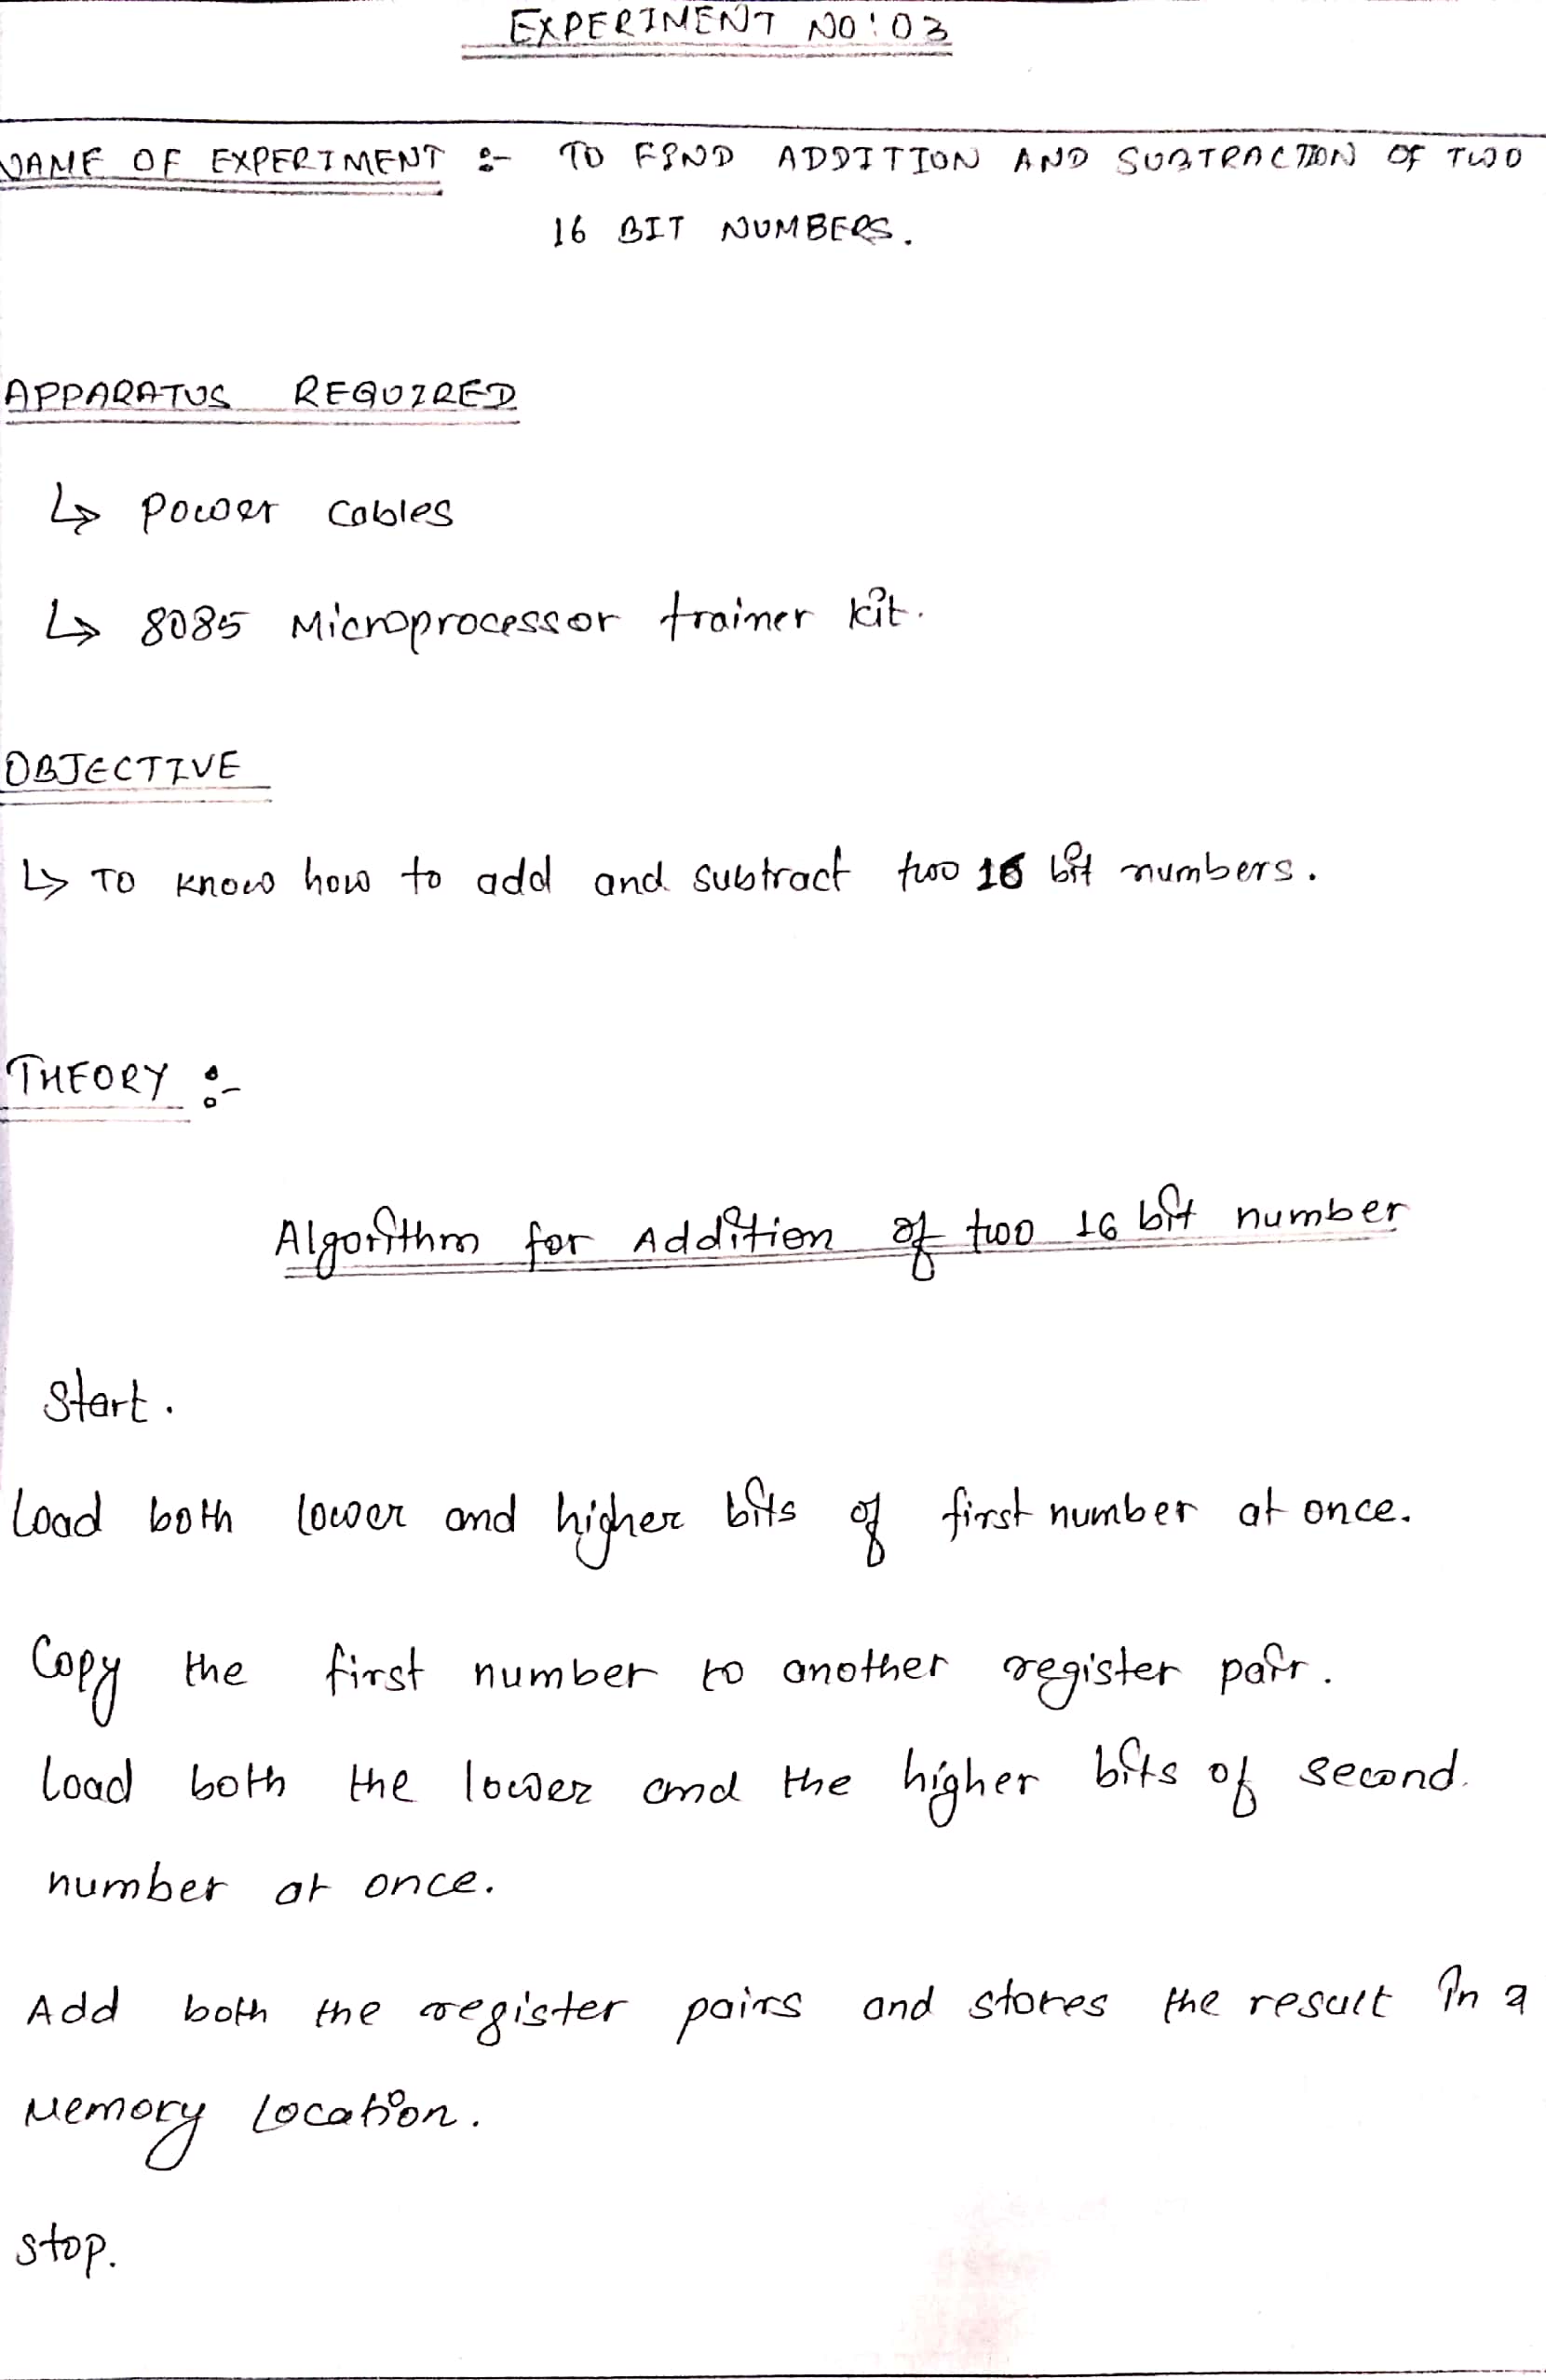 EXPERIMENT NO: 03
NAME OF EXPERIMENT :- TO FIND ADDITION AND SUBTRACTION OF TWO
16 BIT NUMBERS.
APPARATUS REQUIRED
↳ Power cables
↳ 8085 Microprocessor trainer kit.
OBJECTIVE
↳ TO know how to add and subtract two 16 bit numbers.
THEORY :-
Algorithm for Addition of two 16 bit number
Start.
Load both lower and higher bits of first number at once.
Copy the first number to another register pair.
Load both the lower and the higher bits of second
number at once.
Add both the register pairs and stores the result in a
Memory Location.
Stop.